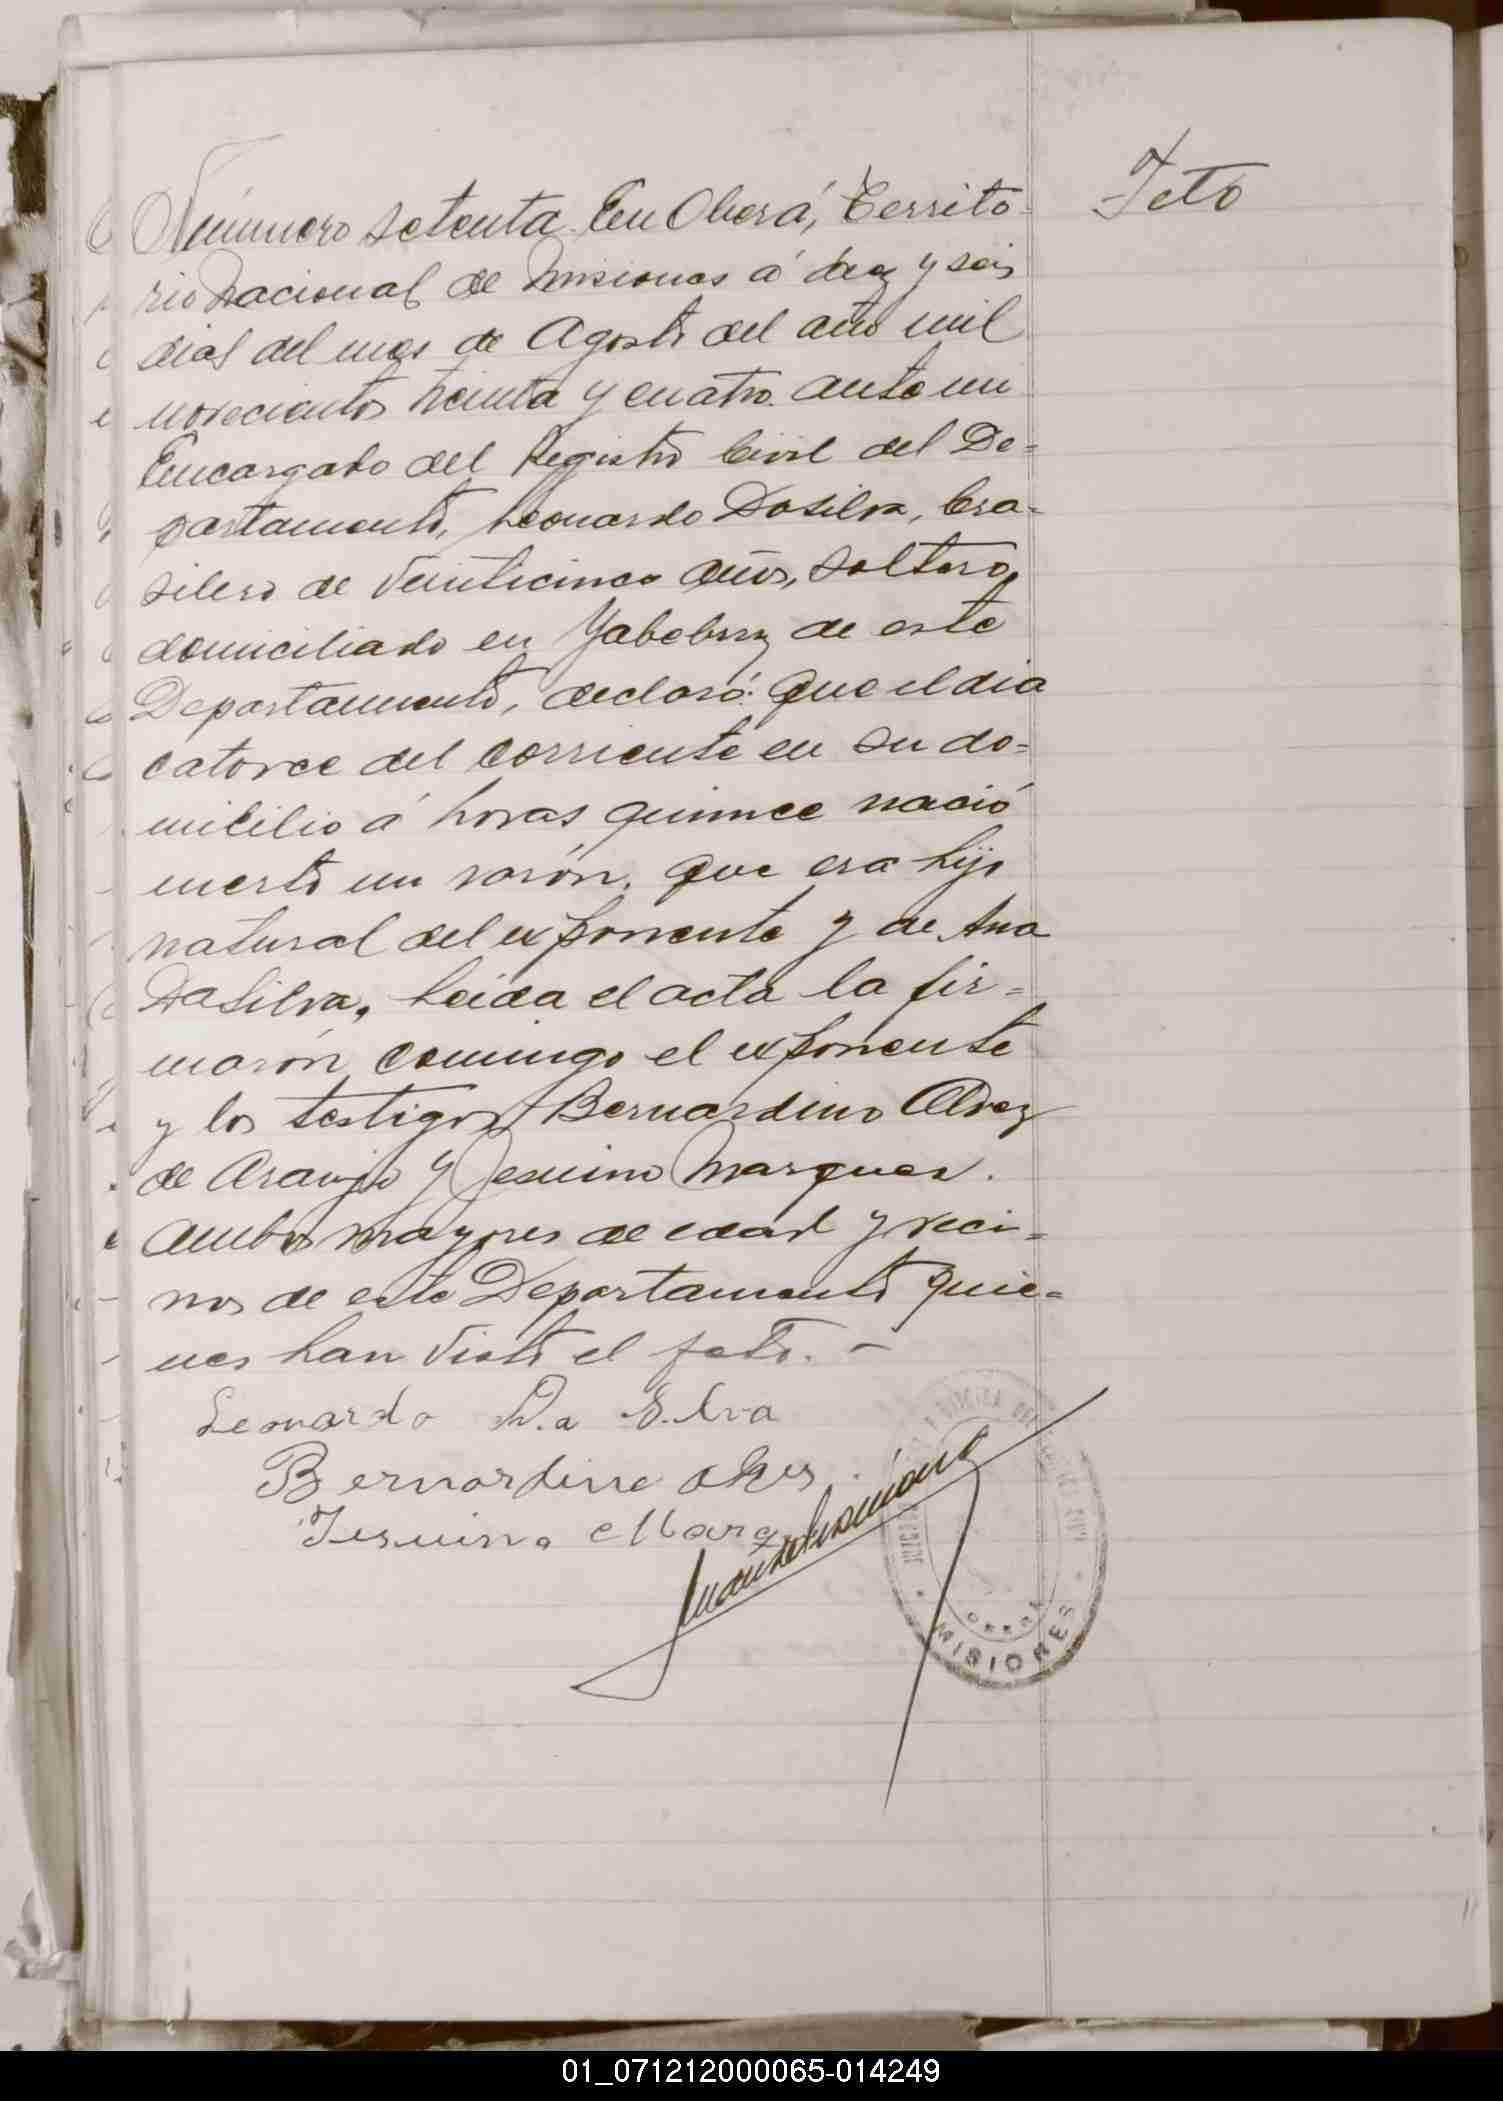 Feto
Número setenta. En Oberá, Territo=
rio Nacional de Misiones á diez y seis
dias del mes de Agosto del año mil
novecientos treinta y cuatro. ante mi
Encargado del Registro Civil del De=
partamento, Leonardo Dasilva, bra=
silero de veinticinco años, soltero,
domiciliado en Yabebiry de este
Departamento, declaró: Que el dia
catorce del corriente en su do=
micilio á horas quince nació
muerto un varón. Que era hijo
natural del exponente y de Ana
DaSilva, Leida el acta la fir=
marón conmigo el exponente
y los testigos Bernardino Alvez
de Araujo y Jesuino Marques.
Ambos mayores de edad y veci=
nos de este Departamento quie=
nes han visto el feto. —
Leonardo Da Silva
Bernardino Alves
Jesuino Marq
JUZGADO
OBERA
MISIONES
01_071212000065-014249